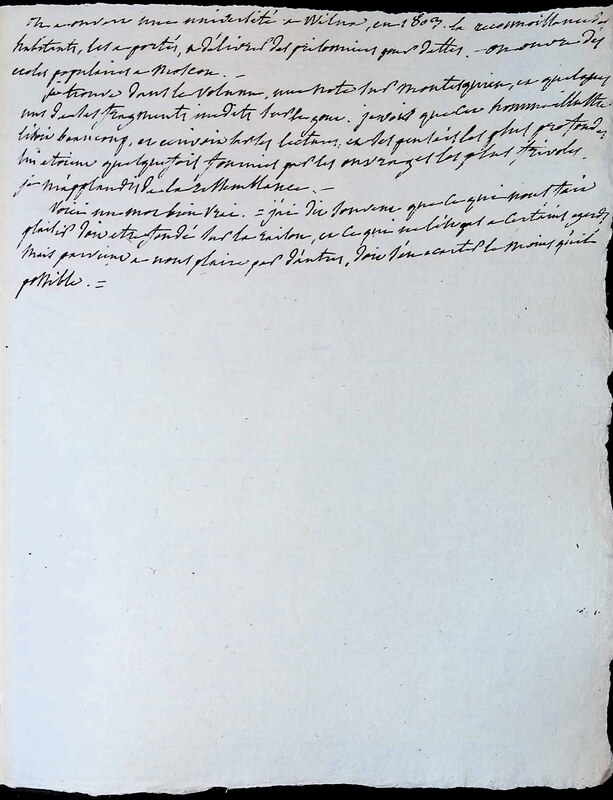 on a ouvert une université a Wilna, en 1803. la reconnoissance des
habitants, les a portés, a délivrer des prisonniers pour dettes. - on ouvre des
ecoles populaires a Moscou. -
je trouve dans le volume, une note sur montesquieu, et quelques
uns de ses fragments inedits sur le gout. je vois que cet homme illustre
lisoit beaucoup, et ecrivoit sur ses lectures, et ses pensées les plus profondes
lui etoient quelquefois fournies par les ouvrages les plus frivoles.
je m'applaudis de la ressemblance. -
Voici un mot bien vrai. = j'ai dit souvent que ce qui nous fait
plaisir doit etre fondé sur la raison, et ce qui ne l'est pas a certains egards
mais parvient a nous plaire par d'autres, doit s'en ecarter le moins qu'il
possible. =